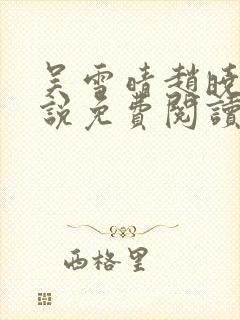 吴雪晴趙晓
說免費閱讀
西格里